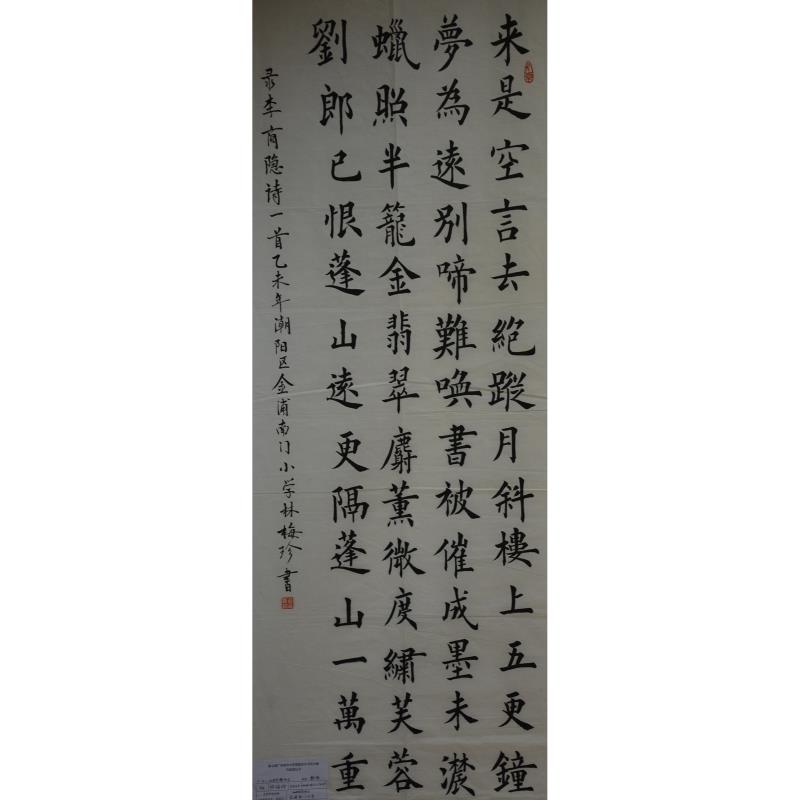 来是空言去絕蹤月斜樓上五更鐘
夢為遠別啼難喚書被催成墨未濃
蠟照半籠金翡翠麝薰微度繡芙蓉
劉郎已恨蓬山遠更隔蓬山一萬重
录李商隐诗一首乙未年潮阳区金浦南门小学林梅珍書